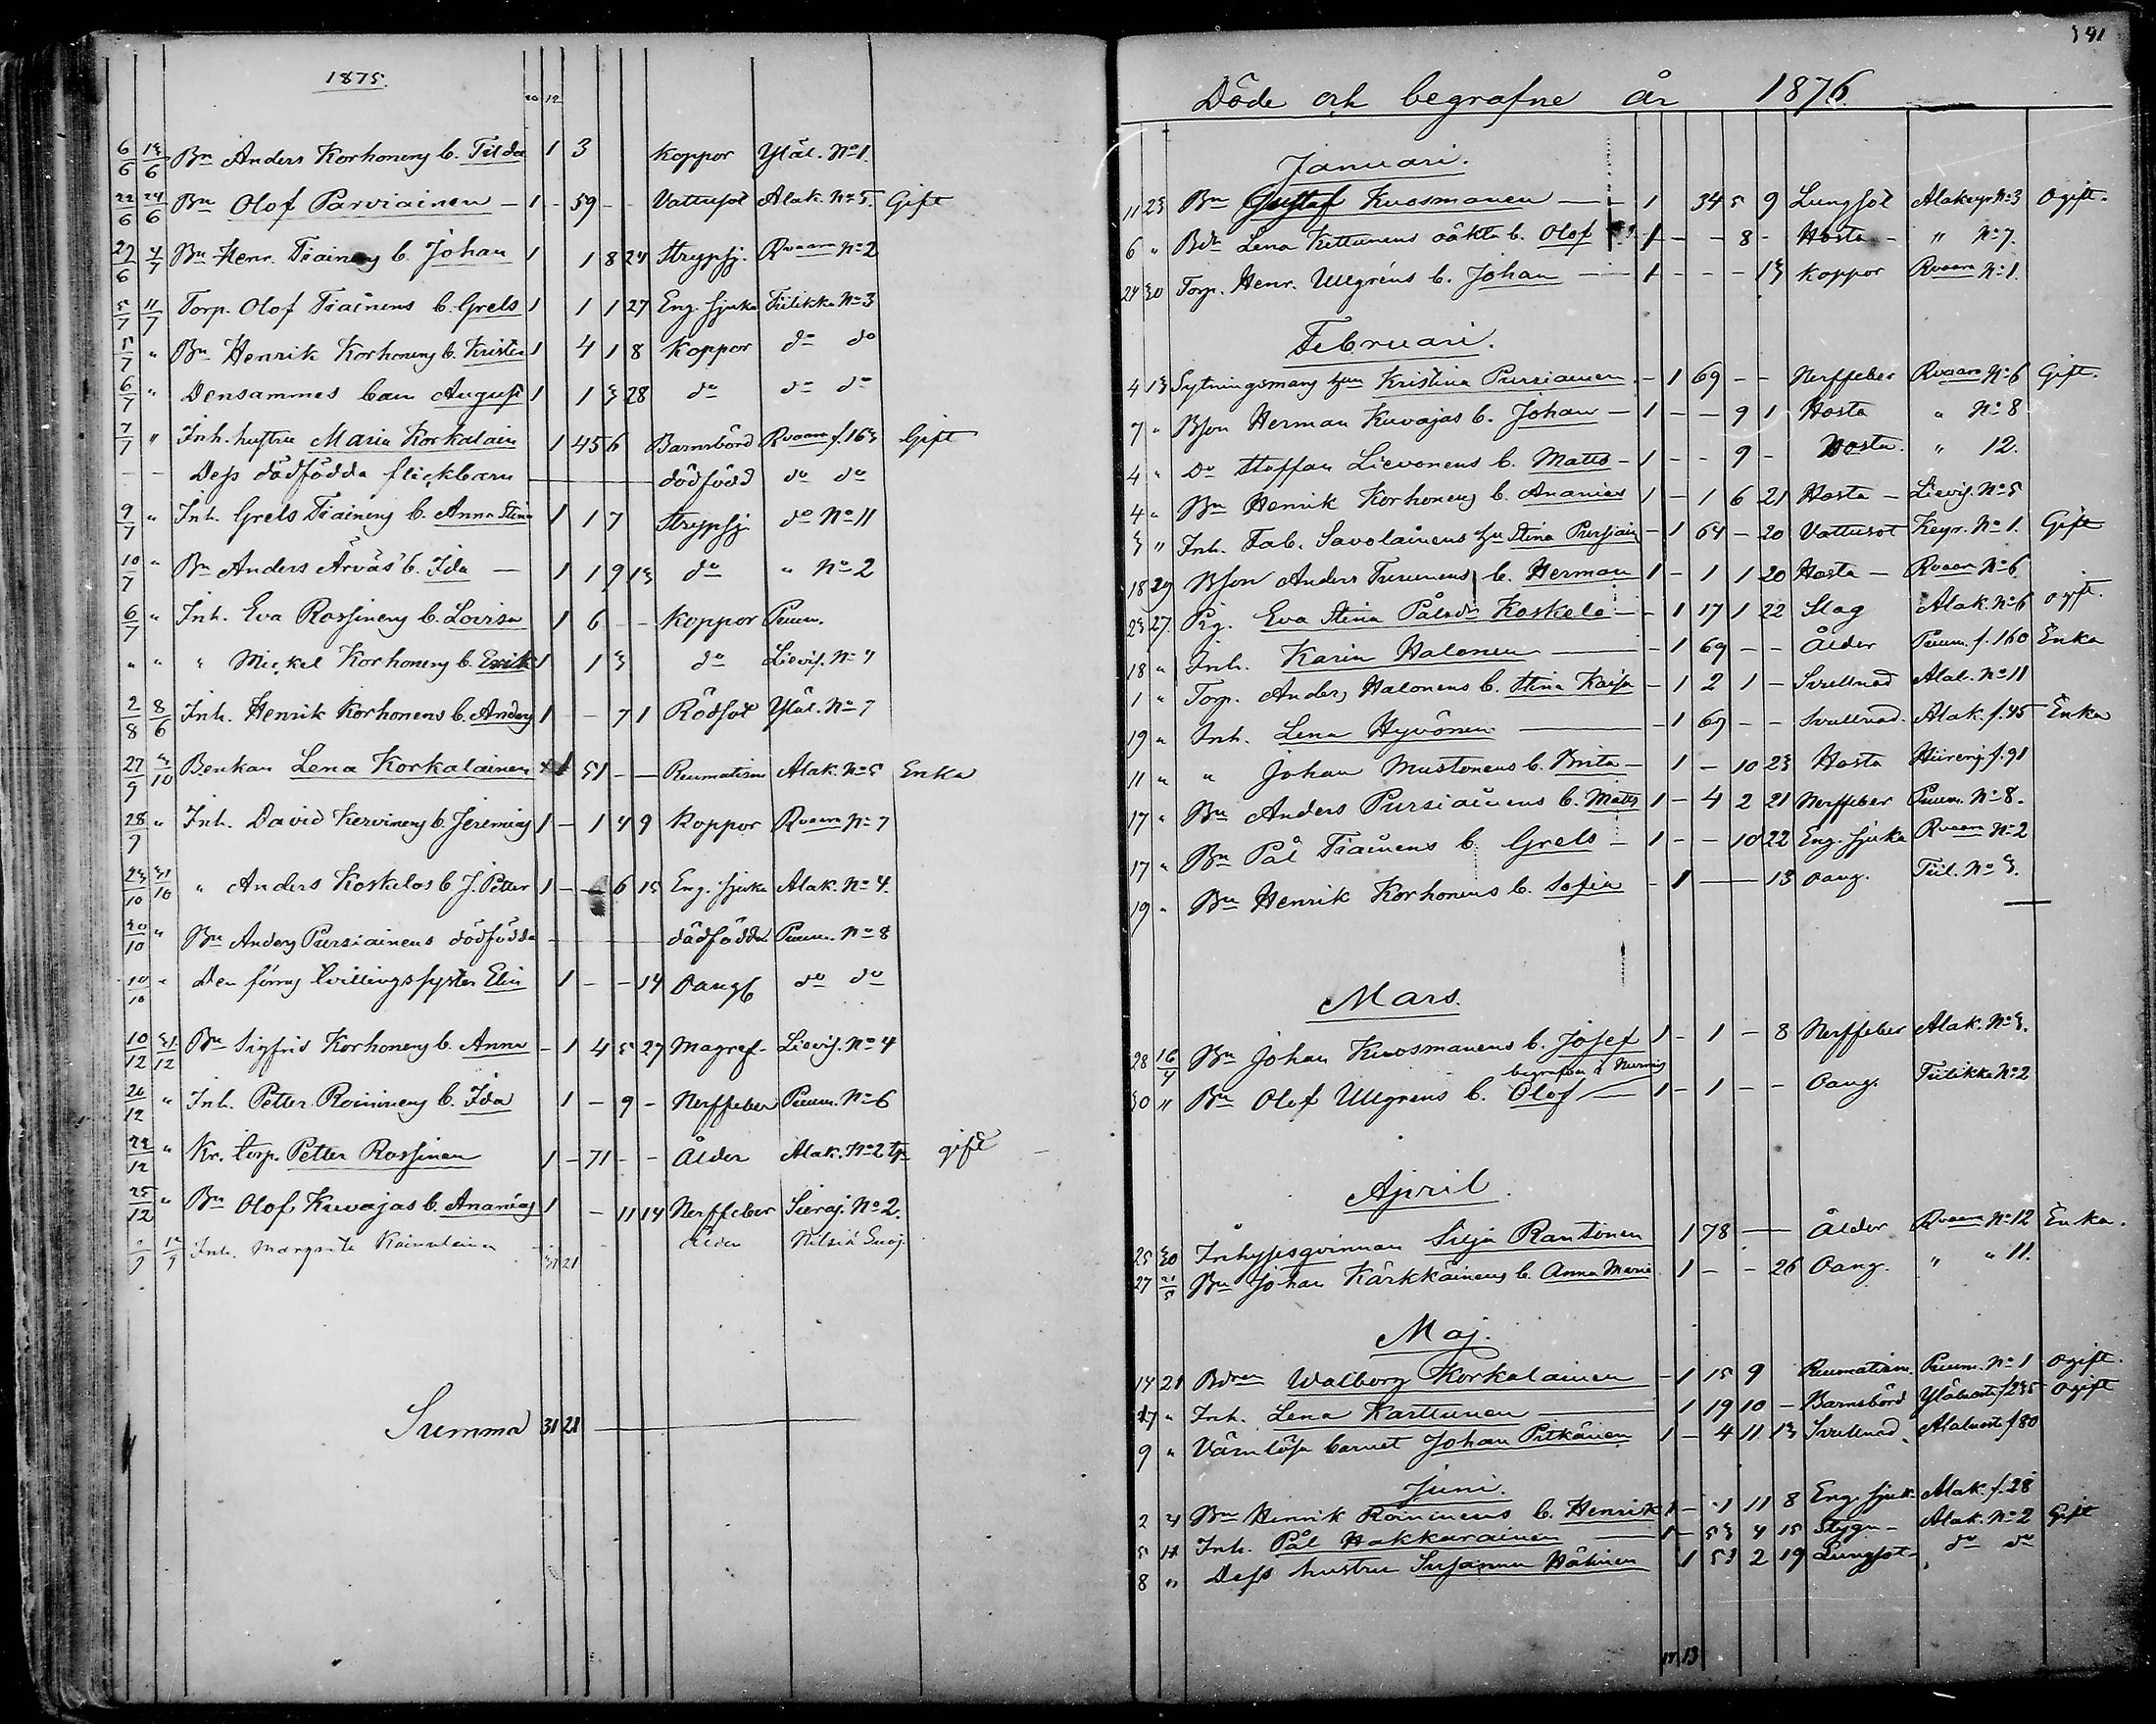 1875.
20 12
6/6 13/6 Bn Anders Korhonens b. Tilda 1 3 Koppor Yläl. No 1.
22/6 24/6 Bn Olof Parviainen — 1 - 59 - - Vattusot Alak. No 5. Gift
27/6 4/7 Bn Henr. Tiainens b. Johan 1 1 8 24 Strypsj. Rvaara No 2
5/7 11/7 Torp. Olof Tiainens b. Grels 1 1 1 27 Eng. sjuka Tiilikka No 3
5/7 " Bn Henrik Korhonens b. Krister 1 4 1 8 Koppor do do
6/7 " Densammes barn August 1 1 3 28 do do do
7/7 " Inh. hustru Maria Korkalain 1 45 6 Barnsbörd Rvaara f. 163 Gift
— — Dess dödfödda flickbarn — dödfödd do do
9/7 " Inh. Grels Tiainens b. Anna Stina 1 1 7 Strypsj. do No 11
10/7 " Bn Anders Ärväs b. Ida — 1 1 9 13 do " No 2
6/7 " Inh. Eva Rossinens b. Lovisa 1 6 - - Koppor Puum.
" " " Mickel Korhonens b. Erik 1 1 3 do Lievis. No 4
2/8 8/6 Inh. Henrik Korhonens b. Anders 1 - - 7 1 Rödsot Yläl. No 7
27/9 3/10 B.enkan Lena Korkalainen 1 51 - — Reumatism Alak. No 5 Enka
28/9 " Inh. David Kervinens b. Jeremias 1 - 1 4 9 Koppor Rvaara No 7
23/10 31/10 " Anders Koskelos b. J. Petter 1 - — 6 15 Eng. sjuka Alak. No 4.
30/10 " Bn Anders Pursiainens dödfödda — dödfödda Puum. No 8
10/10 " Den förras tvillingssyster Elin 1 - - 14 Oangf do do
10/12 31/12 Bn Sigfrid Korhonens b. Anna - 1 4 5 27 Magref- Lievis. No 4
26/12 " Inh. Petter Roininens b. Ida 1 - 9 - Nerffeber Puum. No 6
22/12 " Kr. torp. Petter Rossinen 1 - 71 - - Ålder Alak. No 2 gift
25/12 " Bn Olof Kuvajas b. Ananias 1 - 11 14 Nerffeber Sieraj. No 2.
Inh. Margreta Kainulainen Ålder Nilsiä
31 21
Summa 31 21 —
Döde och begrafne år 1876.
Januari.
11 23 Bn Gustaf Kuosmanen — 1 34 5 9 Lungsot Alakeyr No 3 Ogift.
6 " Bdr Lena Kettunens oäkta b. Olof 1 - - 8 - Hosta - " No 7.
24 30 Torp. Henr. Ullgréns b. Johan — 1 - - - 13 Koppor Rvaara No 1.
Februari.
4 13 Sytningsmans hu Kristina Pursiainen - 1 69 - - Nerffeber Rvaara No 6 Gift.
7 " Bson Herman Kuvajas b. Johan — 1 - - 9 1 Hosta " No 8
4 " Do Staffan Lievonens b. Matts - 1 - - 9 - Hosta. " 12.
4 " Bn Henrik Korhonens b. Ananias 1 - 1 6 21 Hosta - Lievis. No 5
3 " Inh. Fab. Savolainens hu Stina Pursiain - 1 64 - 20 Vattusot Keyr. No 1. Gift
18 29 Bson Anders Turunens b. Herman 1 - 1 1 20 Hosta - Rvaara No 6
23 27. Pig. Eva Stina Pålsdr Koskelo - - 1 17 1 22 Slag Alak. No 6 ogift.
18 " Inh. Karin Halonen — 1 69 - - Ålder Puum. f. 160 Enka
1 " Torp. Anders Halonens b. Stina Kaisa - 1 2 1 - Svullnad Alal. No 11
19 " Inh. Lena Hyvönen — 1 69 - - Svullnad. Alak. f. 45 Enka
11 " " Johan Mustonens b. Brita - 1 - 10 23 Hosta Hiirenj. f. 91
17 " Bn Anders Pursiainens b. Matts 1 - 4 2 21 Nerffeber Puum. No 8.
17 " Bn Pål Tiainens b. Grels - 1 - - 10 22 Eng. sjuka Rvaara No 2
19 " Bn Henrik Korhonens b. Sofia - 1 — 13 oang. Tiil. No 3.
Mars.
28 16/4 Bn Johan Kuosmanens b. Josef 1 - 1 - 8 Nerffeber Alak. No 3.
begrafven i Nurmis
30 " Bn Olof Ullgrens b. Olof — 1 - 1 - - Oang. Tiilikka No 2
April.
25 30 Inhysesqvinnan Silja Rantonen 1 78 — Ålder Rvaara No 12 Enka.
27 21/5 Bn Johan Kärkkäinens b. Anna Maria 1 - - 26 Oang. " " 11.
Maj.
14 21 Bdren Walborg Korkalainen - 1 15 9 Reumatism. Puum. No 1 ogift.
17 " Inh. Lena Karttunen — 1 19 10 - Barnsbörd Yläluosta f 235 ogift
9 " Värnlösa barnet Johan Pitkänen 1 - 4 11 13 Svullnad. Alaluosta f 80
Juni.
2 4 Bn Henrik Roininens b. Henrik 1 - 1 11 8 Eng. sjuk. Alak. f. 28
5 11 Inh. Pål Hakkarainen — 1 - 53 4 15 Stygn - Alak. No 2 Gift
8 " Dess hustru Susanna Hätinen 1 53 2 19 Lungsot - do do
17 13